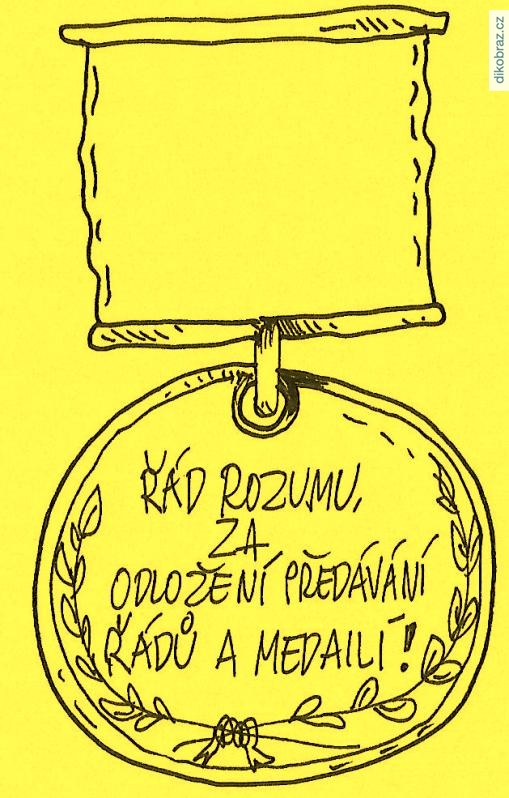 dikobraz.cz
ŘÁD ROZUMU,
ZA
ODLOŽENÍ PŘEDÁVÁNÍ
ŘÁDŮ A MEDAILÍ!